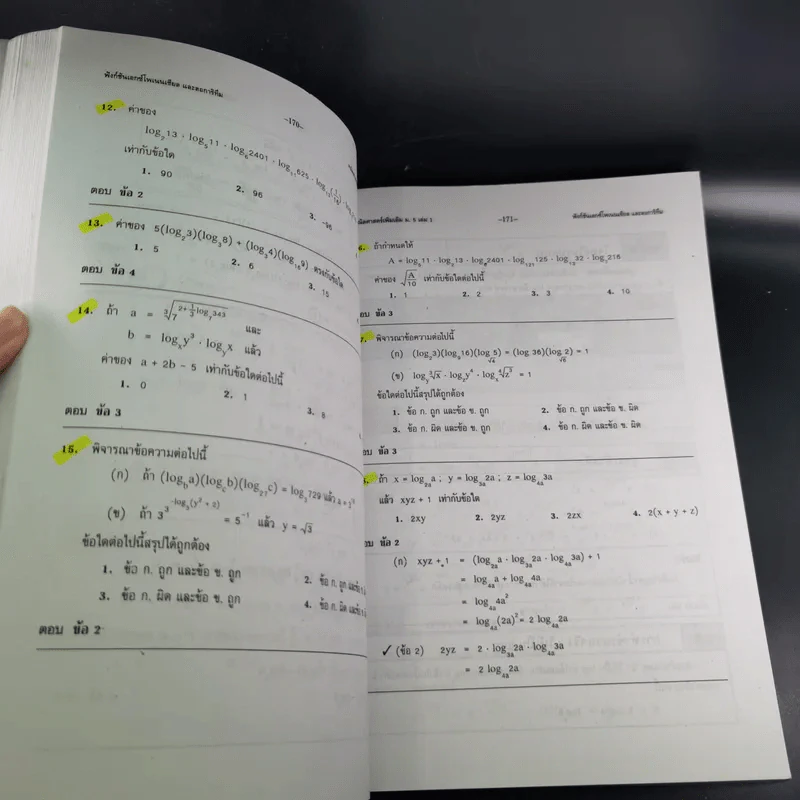 ฟังก์ชันเอกซ์โพเนนเชียล และลอการิทึม
-170-
12. ค่าของ
log₇13 · log₅11 · log₆2401 · log₁₁625 ·
เท่ากับข้อใด
1. 90 2. 96 3. -96
ตอบ ข้อ 2
13. ค่าของ 5(log₂3)(log₉8) + (log₃4)(log₁₆9) ตรงกับข้อใด
1. 5 2. 6 3. 15
ตอบ ข้อ 4
14. ถ้า a = ∛(7^(2+⅓log₇343)) และ
b = logₓy³ · log_y x แล้ว
ค่าของ a + 2b - 5 เท่ากับข้อใดต่อไปนี้
1. 0 2. 1 3. 8
ตอบ ข้อ 3
15. พิจารณาข้อความต่อไปนี้
(ก) ถ้า (log_b a)(log_c b)(log₂₇c) = log₃729 แล้ว
(ข) ถ้า 3 = 5⁻¹ แล้ว y = √3
ข้อใดต่อไปนี้สรุปได้ถูกต้อง
1. ข้อ ก. ถูก และข้อ ข. ถูก 2. ข้อ ก. ถูก และข้อ
3. ข้อ ก. ผิด และข้อ ข. ถูก 4. ข้อ ก. ผิด และข้อ
ตอบ ข้อ 2
คณิตศาสตร์เพิ่มเติม ม. 5 เล่ม 1 -171- ฟังก์ชันเอกซ์โพเนนเชียล และลอการิทึม
6. ถ้ากำหนดให้
A = log₅11 · log₃13 · log₆2401 · log₁₂₁125 · log₁₃32 · log₇216
ค่าของ √(A/10) เท่ากับข้อใดต่อไปนี้
1. 1 2. 2 3. 3 4. 10
ตอบ ข้อ 3
7. พิจารณาข้อความต่อไปนี้
(ก) (log₂3)(log₉16)(log_√4 5) = (log 36)(log_√6 2) = 1
(ข) log_y ∛x · log_z y⁴ · logₓ ∜z³ = 1
ข้อใดต่อไปนี้สรุปได้ถูกต้อง
1. ข้อ ก. ถูก และข้อ ข. ถูก 2. ข้อ ก. ถูก และข้อ ข. ผิด
3. ข้อ ก. ผิด และข้อ ข. ถูก 4. ข้อ ก. ผิด และข้อ ข. ผิด
ตอบ ข้อ 3
ถ้า x = log₂ₐa ; y = log₃ₐ2a ; z = log₄ₐ3a
แล้ว xyz + 1 เท่ากับข้อใด
1. 2xy 2. 2yz 3. 2zx 4. 2(x + y + z)
ตอบ ข้อ 2
(ก) xyz + 1 = (log₂ₐa · log₃ₐ2a · log₄ₐ3a) + 1
= log₄ₐa + log₄ₐ4a
= log₄ₐ4a²
= log₄ₐ(2a)² = 2 log₄ₐ2a
✓ (ข้อ 2) 2yz = 2 · log₃ₐ2a · log₄ₐ3a
= 2 log₄ₐ2a